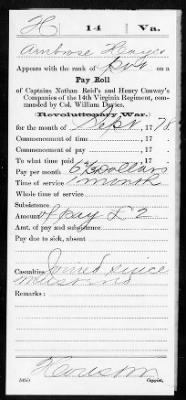 H 14 Va.
Ambrose Hayes
Appears with the rank of Pvt on a
Pay Roll
of Captains Nathan Reid's and Henry Conway's
Companies of the 14th Virginia Regiment, com-
manded by Col. William Davies.
Revolutionary War.
for the month of Sept, 1778.
Commencement of time , 17
Commencement of pay , 17
To what time paid , 17
Pay per month 6 2/3 Dollars
Time of service 1 month
Whole time of service
Subsistance
Amount of pay £ 2
Amt. of pay and subsistance
Pay due to sick, absent
Casualties Joined since
Remarks :
Copyist.